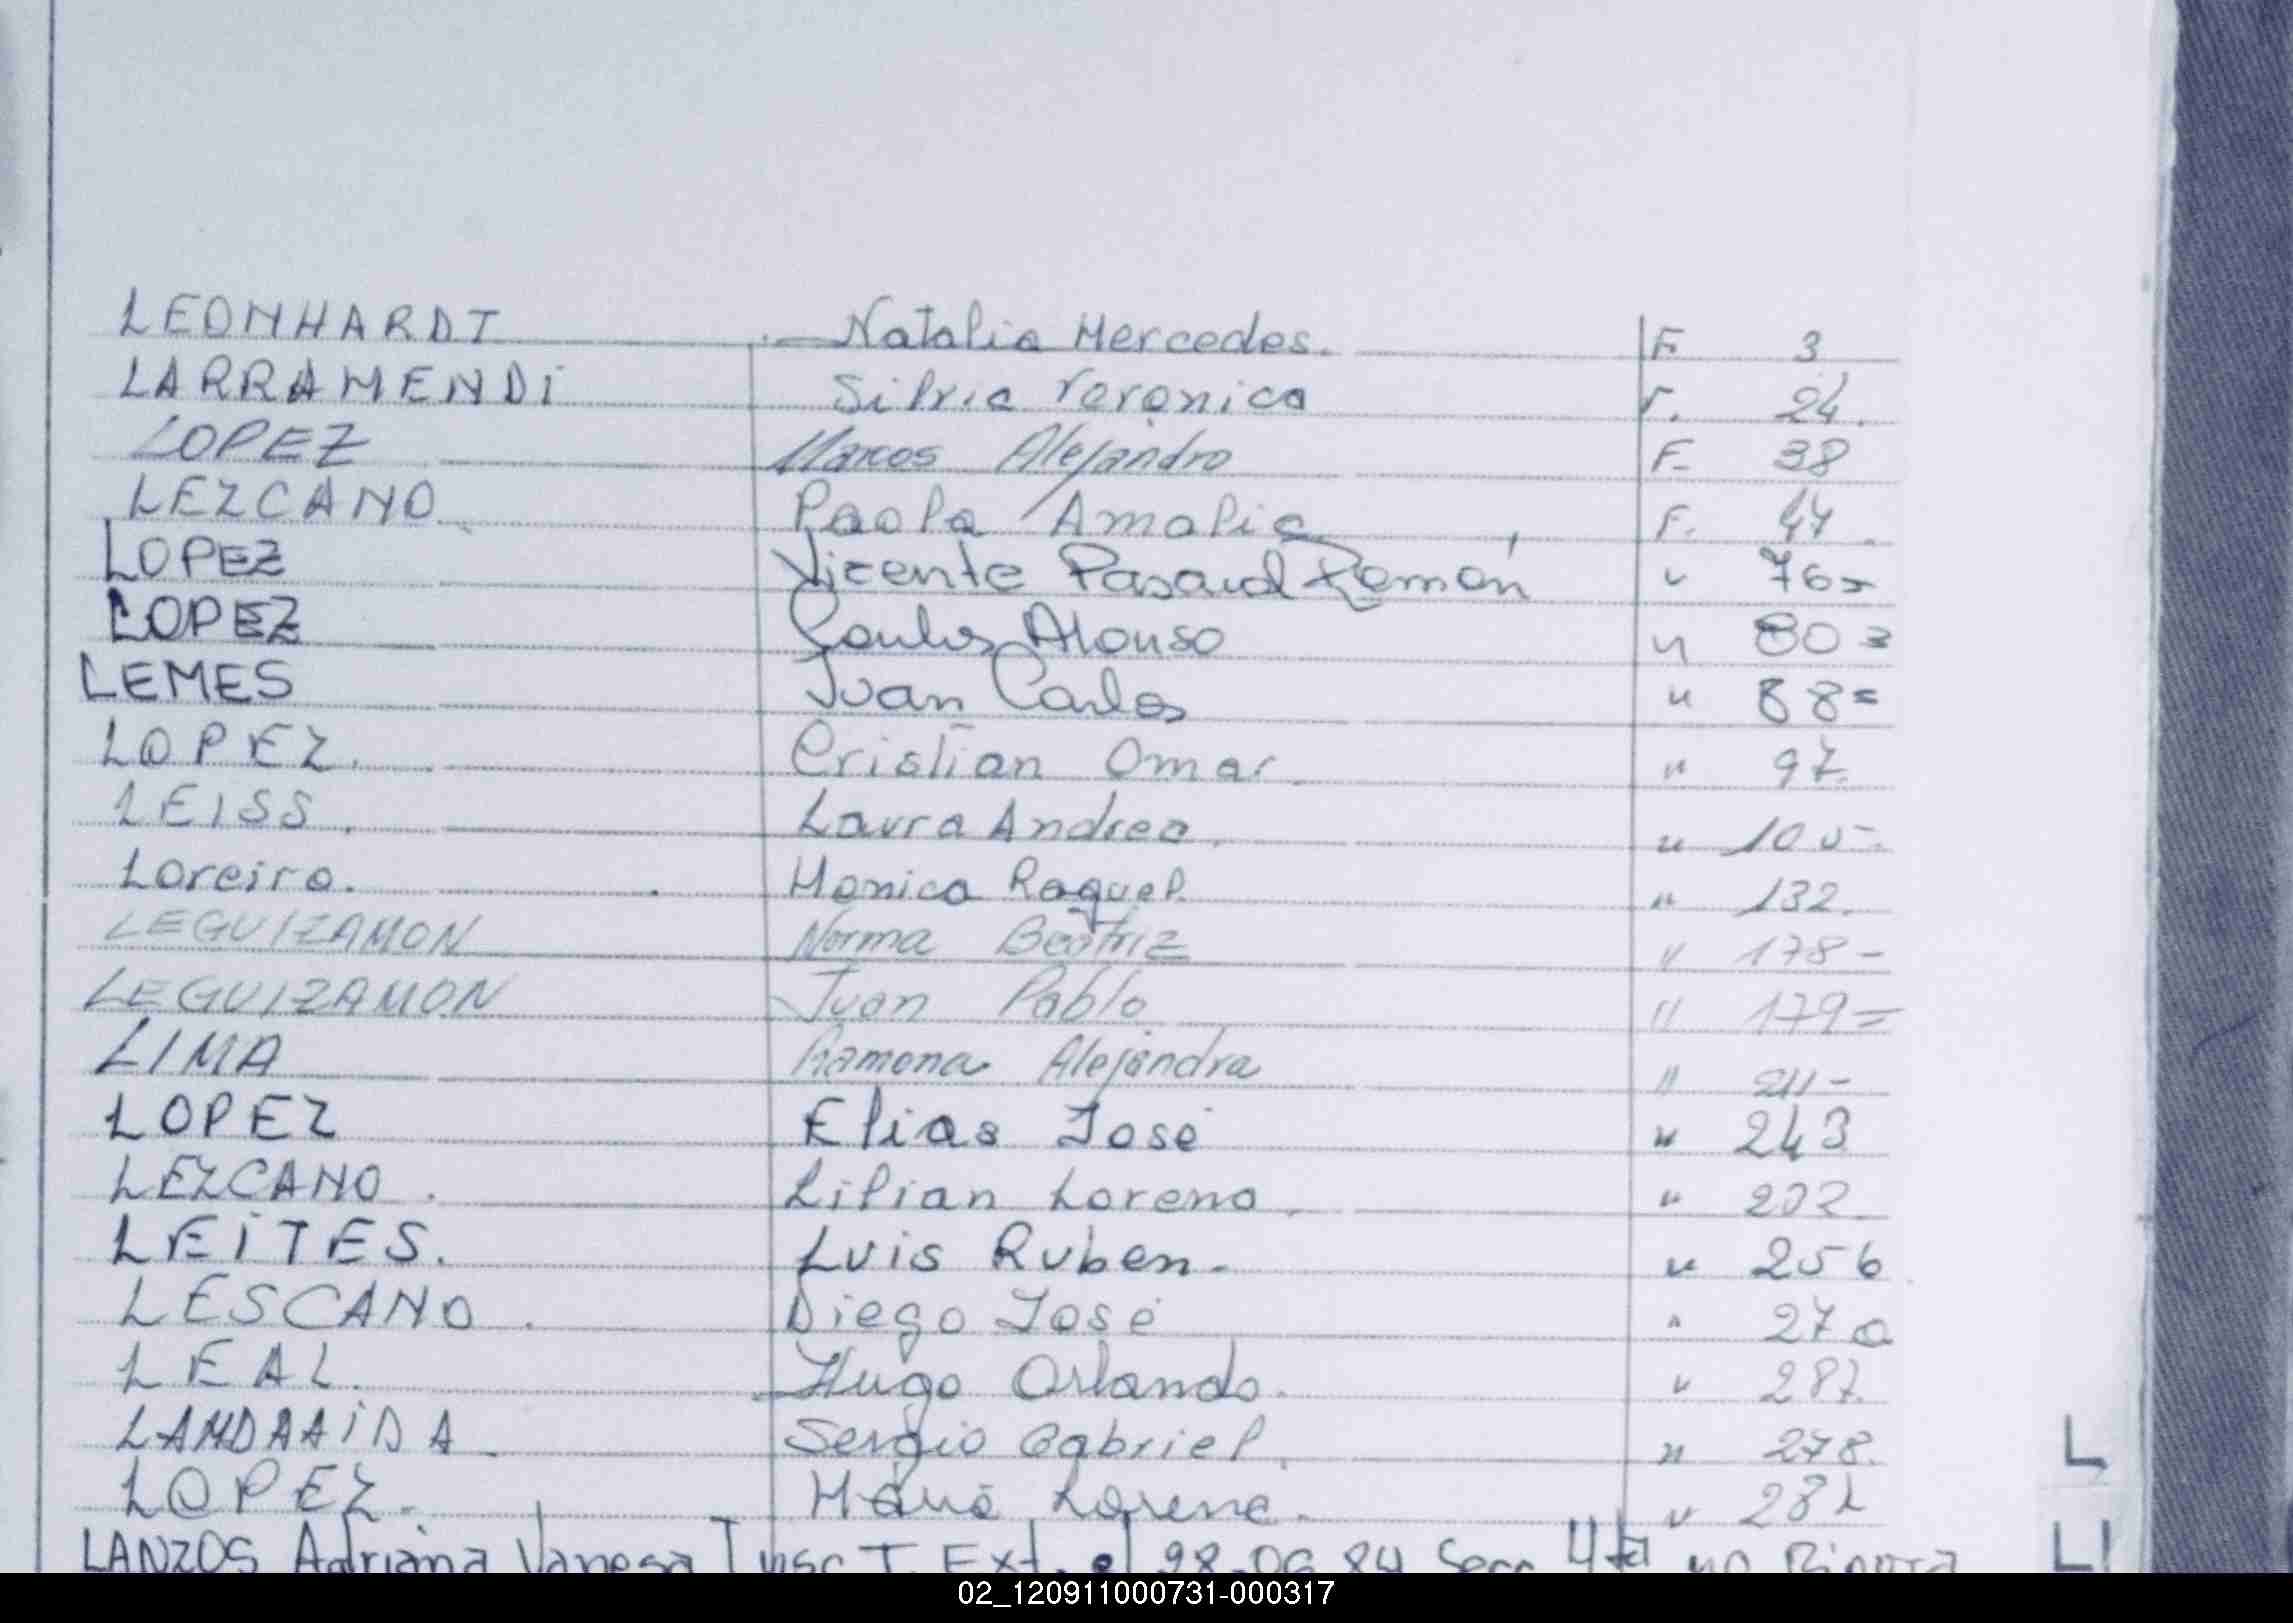 LEONHARDT Natalia Mercedes. F. 3
LARRAMENDi Silvia Veronica F. 24.
LOPEZ Marcos Alejandro F. 38
LEZCANO Paola Amalia F. 44.
LOPEZ Vicente Ramón " 76=
LOPEZ Carlos Alonso " 80=
LEMES Juan Carlos " 88=
LOPEZ. Cristian Omar. " 97.
LEISS. Laura Andrea. "
Loreiro. Monica Raquel. " 132.
LEGUIZAMON Norma Beatriz " 178-
LEGUIZAMON Juan Pablo " 179=
LIMA Ramona Alejandra " 211-
LOPEZ Elias José " 243
LEZCANO. Lilian Lorena. " 202
LEiTES. Luis Ruben. " 256
LESCANO. Diego José " 270
LEAL. Hugo Orlando. " 287.
Sergio Gabriel. " 278.
LOPEZ. Lorena. "
LANZOS Adriana Vanesa Insc T. Ext. el 28-06 84 Secc 4ta
L
L
02_120911000731-000317